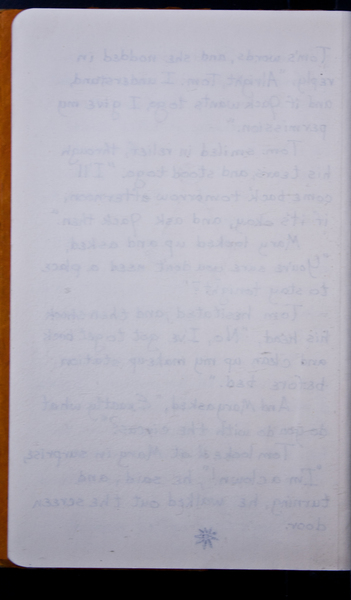 Tom's words, and she nodded in
reply. "Alright Tom. I understand,
and if Jack wants to go I give my
permission."
Tom smiled in relief through
his tears, and stood to go. "I'll
come back tomorrow afternoon,
if it's okay, and ask Jack then."
Mary looked up and asked,
"You're sure you don't need a place
to stay tonight?"
Tom hesitated, and then shook
his head. "No, I've got to get back
and clean up my makeup station
before bed."
And Mary asked, "Exactly what
do you do with the circus?"
Tom looked at Mary in surprise,
"I'm a clown!", he said, and
turning, he walked out the screen
door.